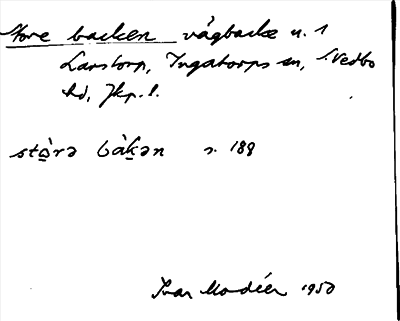 Store backen vägbacke n. 1
Larstorp, Ingatorps sn, S. Vedbo
hd, Jkp. l.
stò̱rə bàkən s. 189
Ivar Modéer 1950